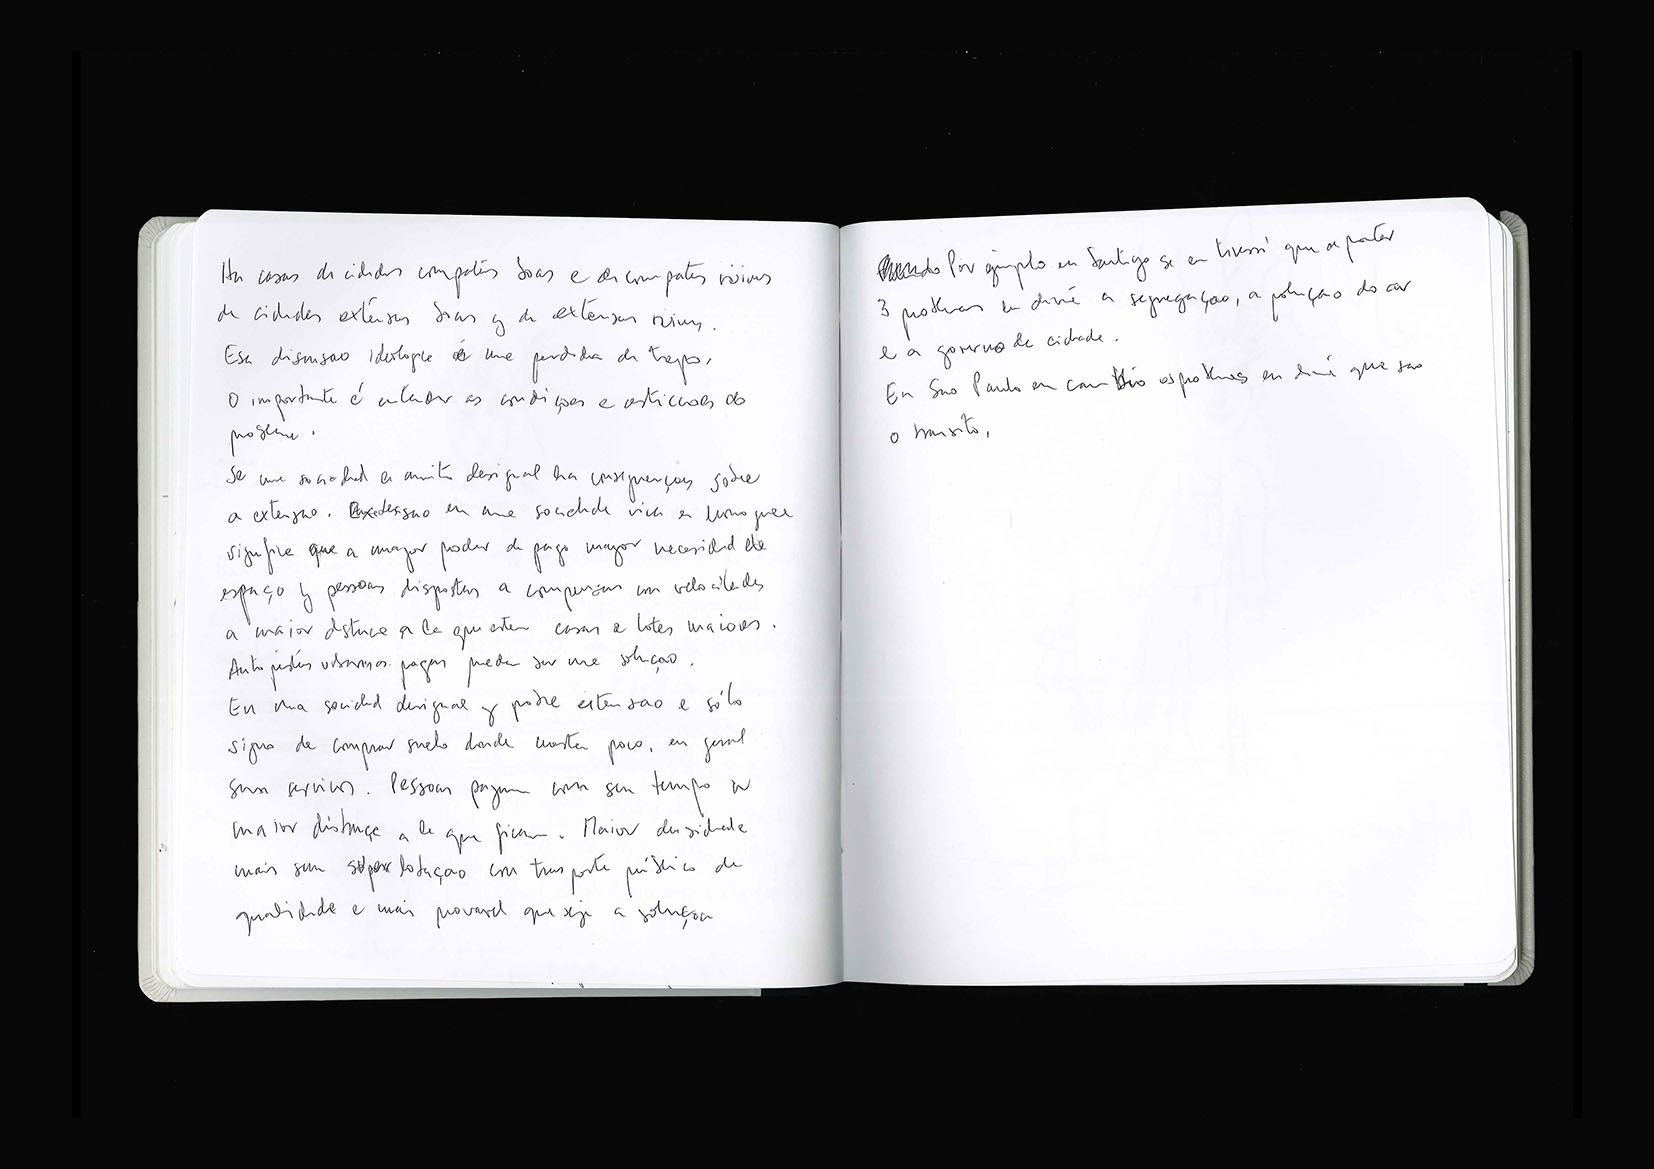 Ha casos de cidades compatas boas e de compatas ruins
de cidades extensas boas y de extensas ruins.
Esa discusao ideologic é une perdida de tempo.
O importante é entender as condições e restricoes do
probleme.
Se una sociedad es muito desigual ha consequenças sobre
a extensao. Extensao en une sociedade rica e homogenea
significa que a mayor poder de pago mayor necesidad de
espaço y pessoas dispostas a compensar con velocidades
a maior distance a la que estan casas e lotes maiores.
Autopistas urbanas pagas pueden ser une soluçao.
En una sociedad desigual y pobre extensao e sólo
signo de comprar suelo donde costa poco, en geral
sem servicos. Pessoas pagam com seu tempo a
maior distançe a la que ficam. Maior densidade
mais sem superlotaçao con trasporte público de
qualidade e mais provavel que seja a soluçoa
Por ejemplo en Santiago se eu tivessi que apontar
3 problemas eu diria a segregaçao, a poluçao do ar
e a governo de cidade.
En Sao Paulo en cambio os problemas eu diria que sao
o transito,